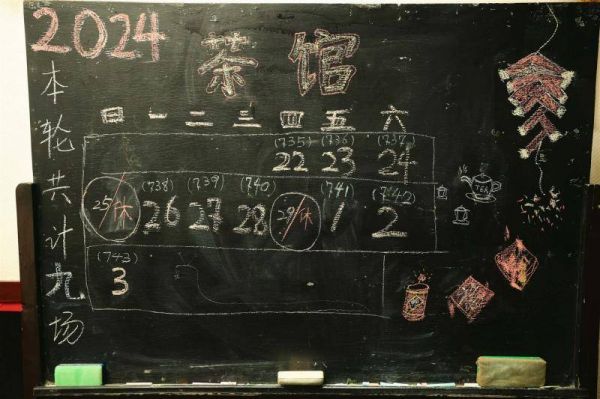 2024
茶馆
本轮共计九场
日 一 二 三 四 五 六
(735) (736) (737)
22 23 24
(738) (739) (740) (741) (742)
25/休 26 27 28 29/休 1 2
(743)
3
TEA